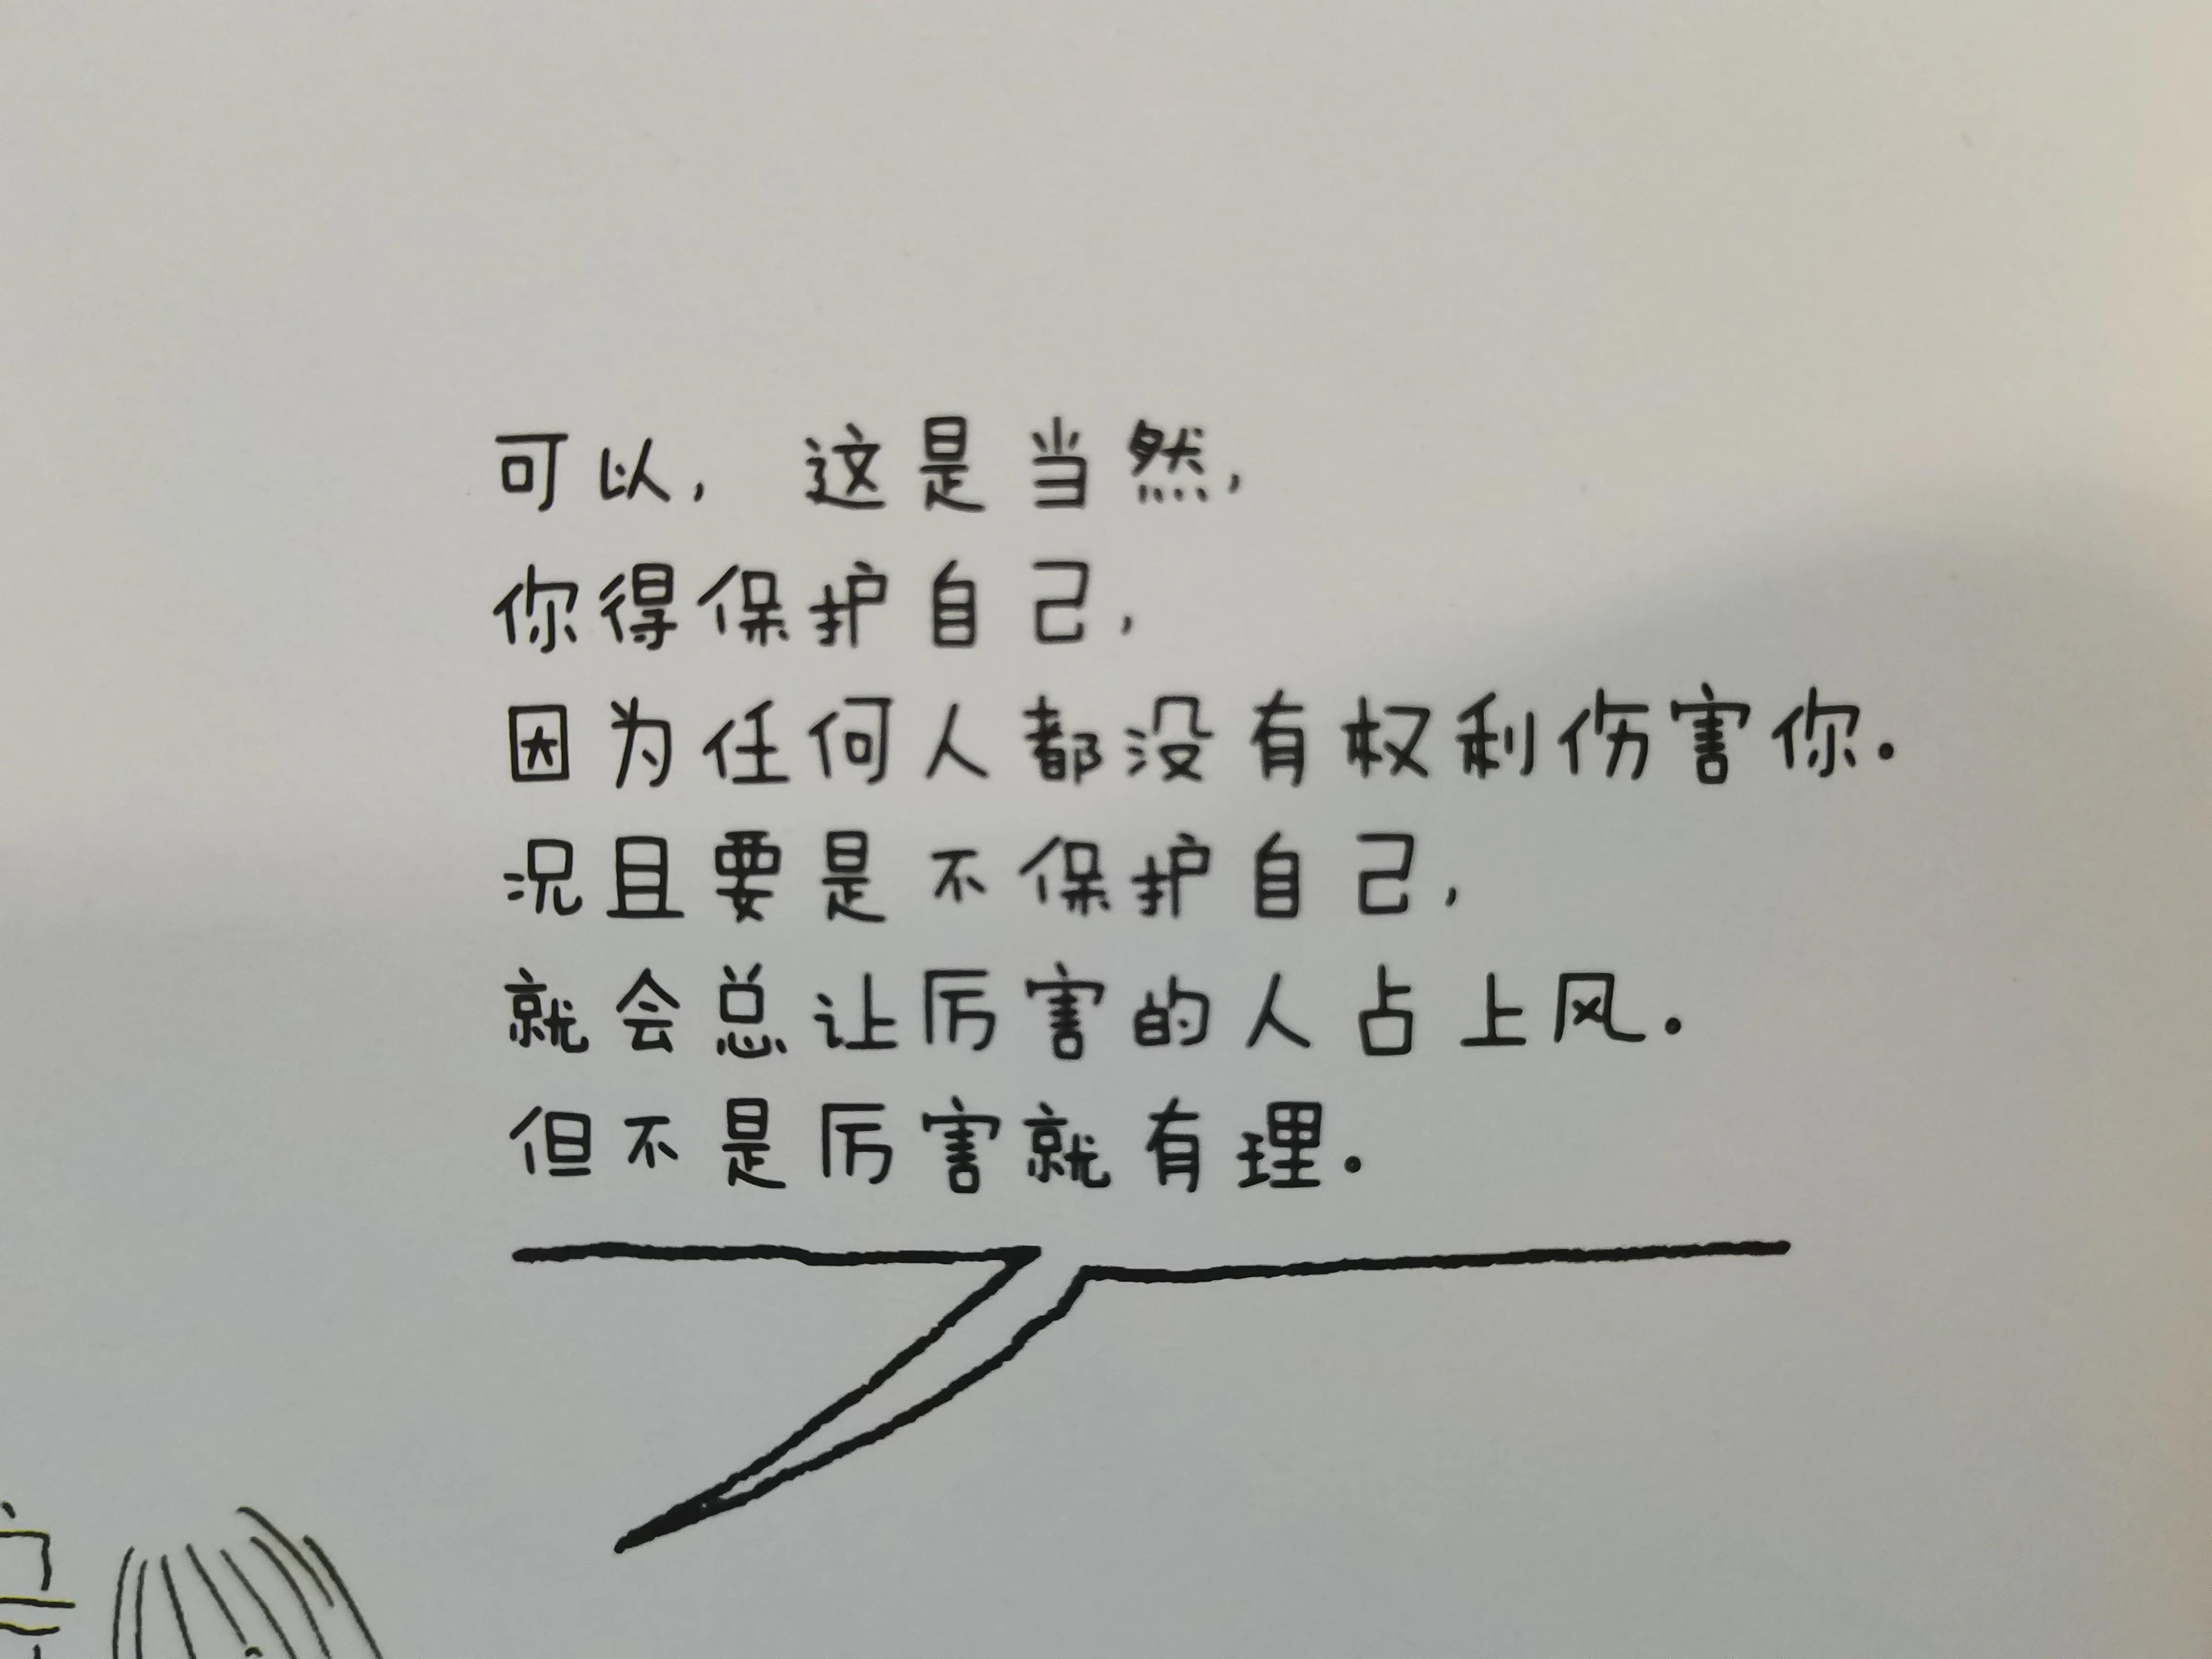 可以，这是当然，
你得保护自己，
因为任何人都没有权利伤害你.
况且要是不保护自己，
就会总让厉害的人占上风.
但不是厉害就有理.